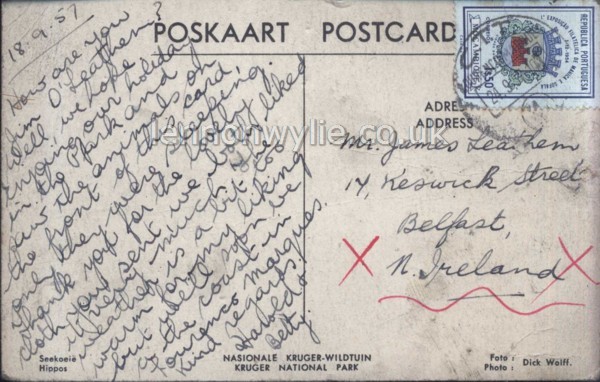 POSKAART POSTCARD
18.9.57
How are you
Jim O'Leathem?
Well we hope.
Enjoying our holiday
in the Park and
saw the animals on
the front of this card,
only they were sleeping.
Thank you for the lovely
cloth you sent we both liked
it very much. The
weather is a bit too
warm for my liking
but well soon be
at the coast in
Lourenso Marques.
Kind regards
Harold &
Betty.
REPUBLICA PORTUGUESA
EXPOSIÇÃO FILATELICA DE MANICA E SOFALA
MOÇAMBIQUE
ADRES
ADDRESS
Mr. James Leathem
14, Keswick Street
Belfast,
N. Ireland
lennonwylie.co.uk
Seekoeië
Hippos
NASIONALE KRUGER-WILDTUIN
KRUGER NATIONAL PARK
Foto :
Photo : Dick Wolff.